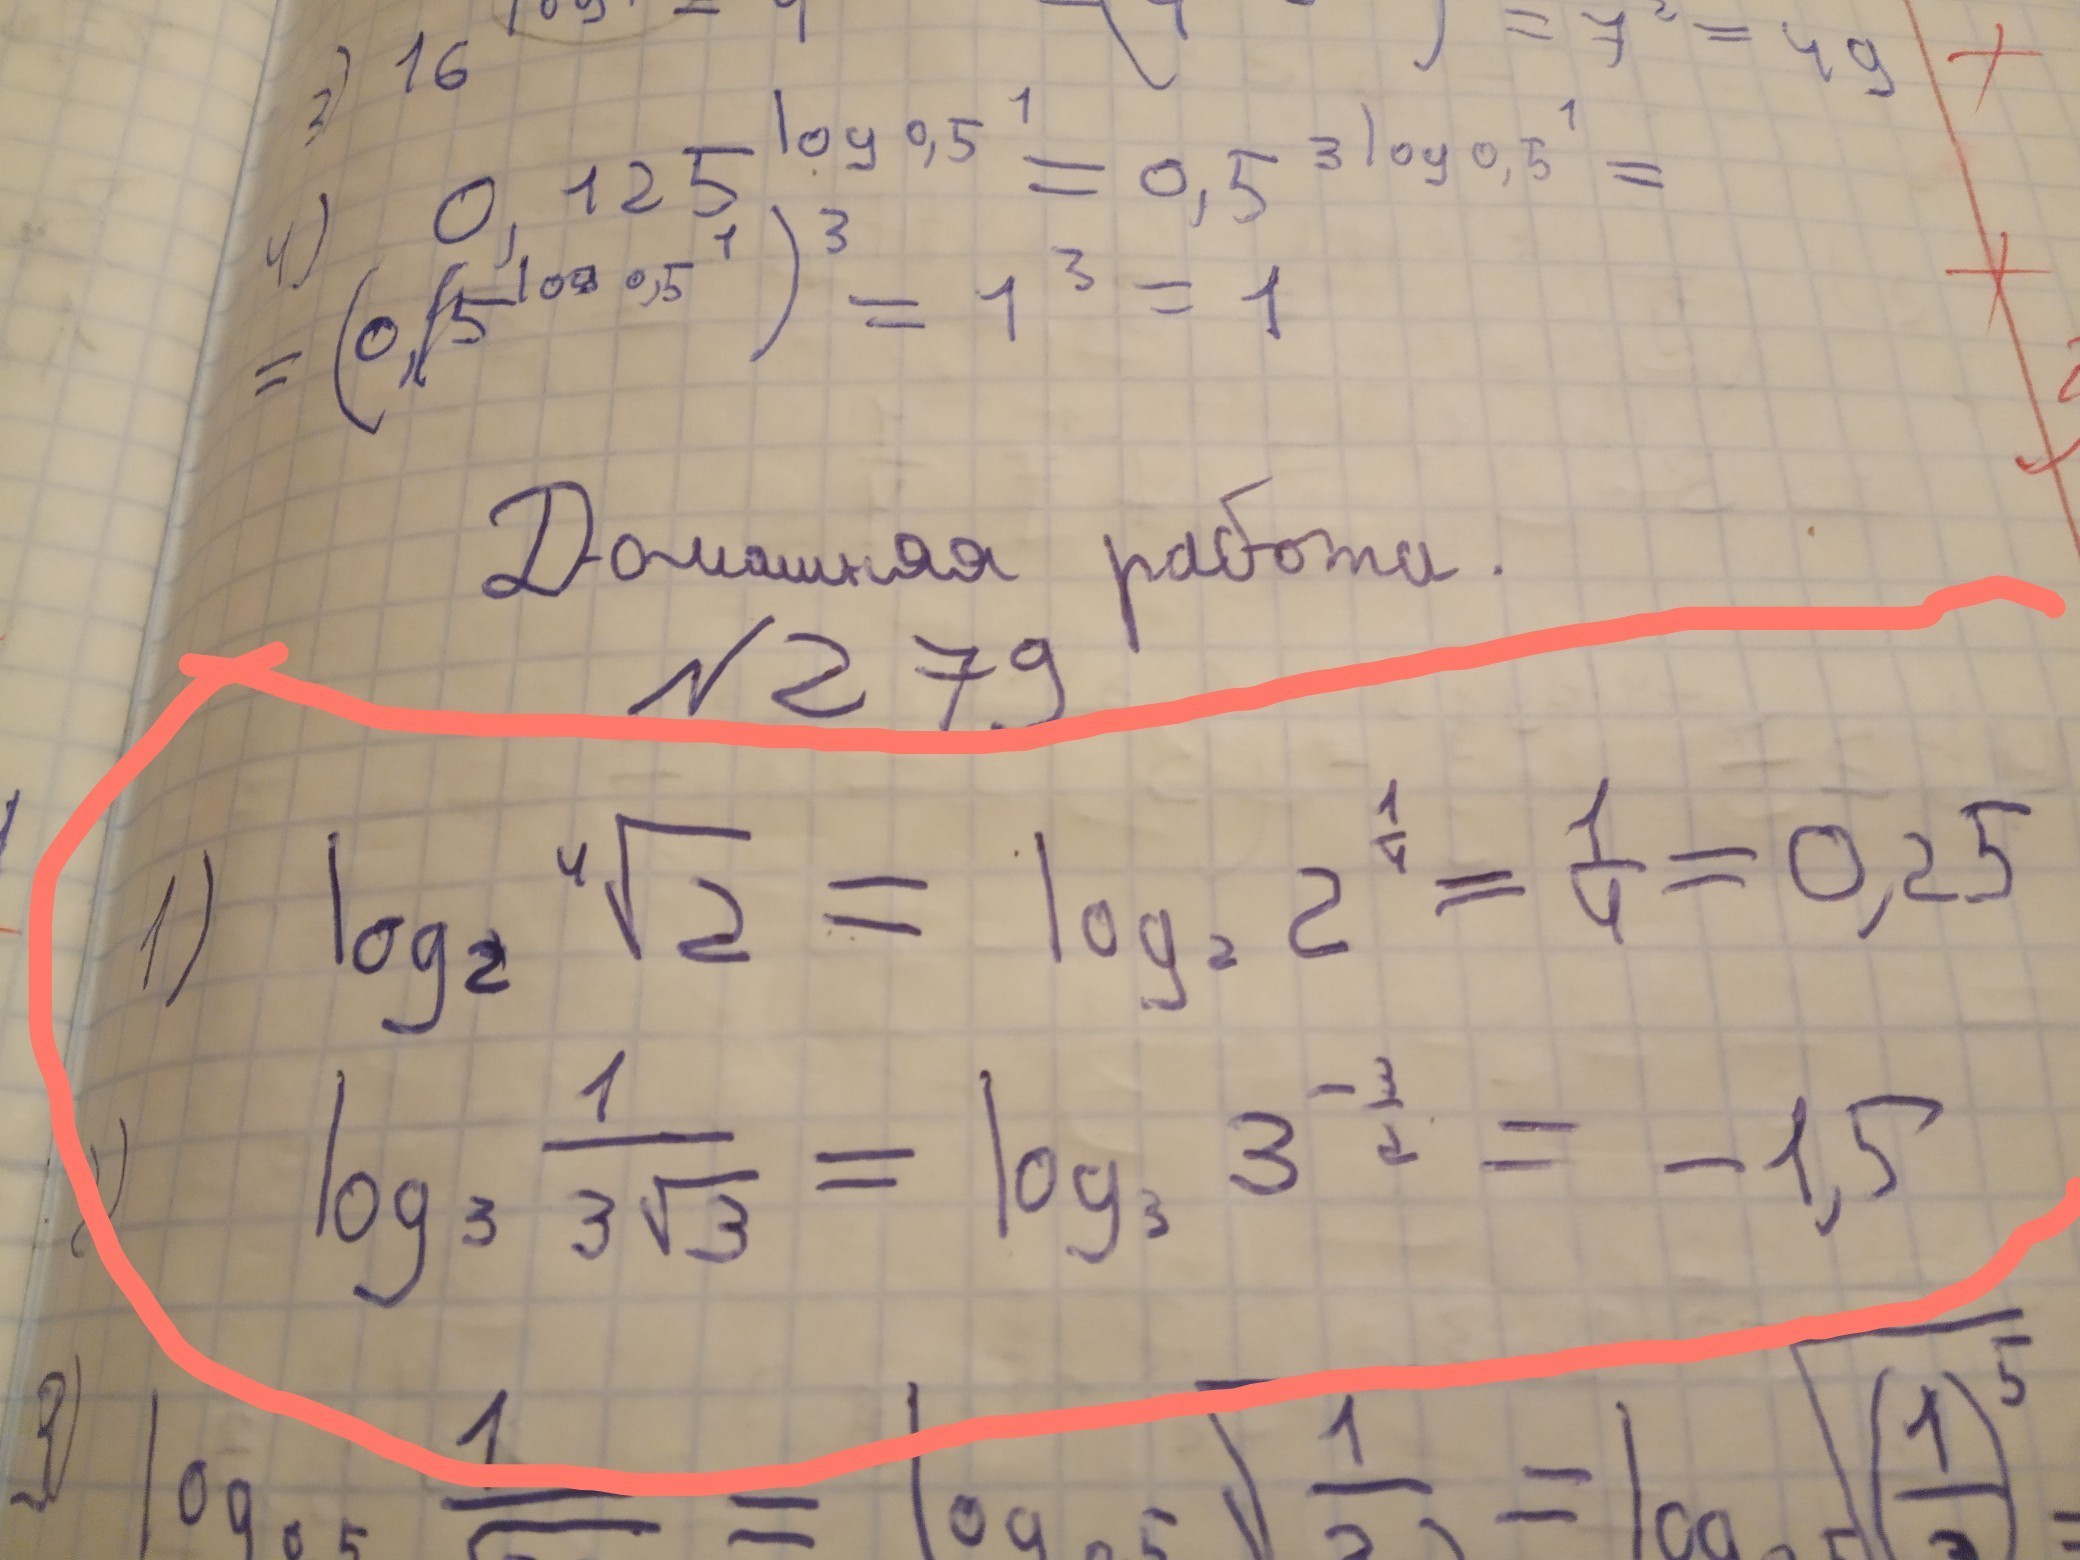 3) 16
= 7² = 49
4) 0,125^log 0,5 1 = 0,5^3 log 0,5 1 =
= (0,5^log 0,5 1)³ = 1³ = 1
Домашняя работа.
№279
1) log₂ ⁴√2 = log₂ 2^1/4 = 1/4 = 0,25
2) log₃ 1/(3√3) = log₃ 3^-3/2 = -1,5
3) log 0,5